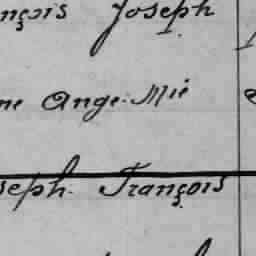 nçois Joseph
ne Ange-Mie
seph. François